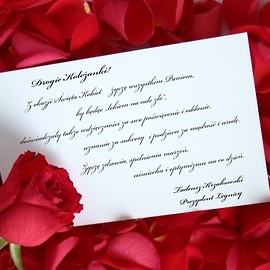 Drogie Koleżanki!
Z okazji Święta Kobiet życzę wszystkim Paniom,
by będąc „lekiem na całe zło",
doświadczały także wdzięczności za swe poświęcenie i oddanie,
uznania za sukcesy i podziwu za mądrość i urodę.
Życzę zdrowia, spełnienia marzeń,
uśmiechu i optymizmu na co dzień.
Tadeusz Krzakowski
Prezydent Legnicy